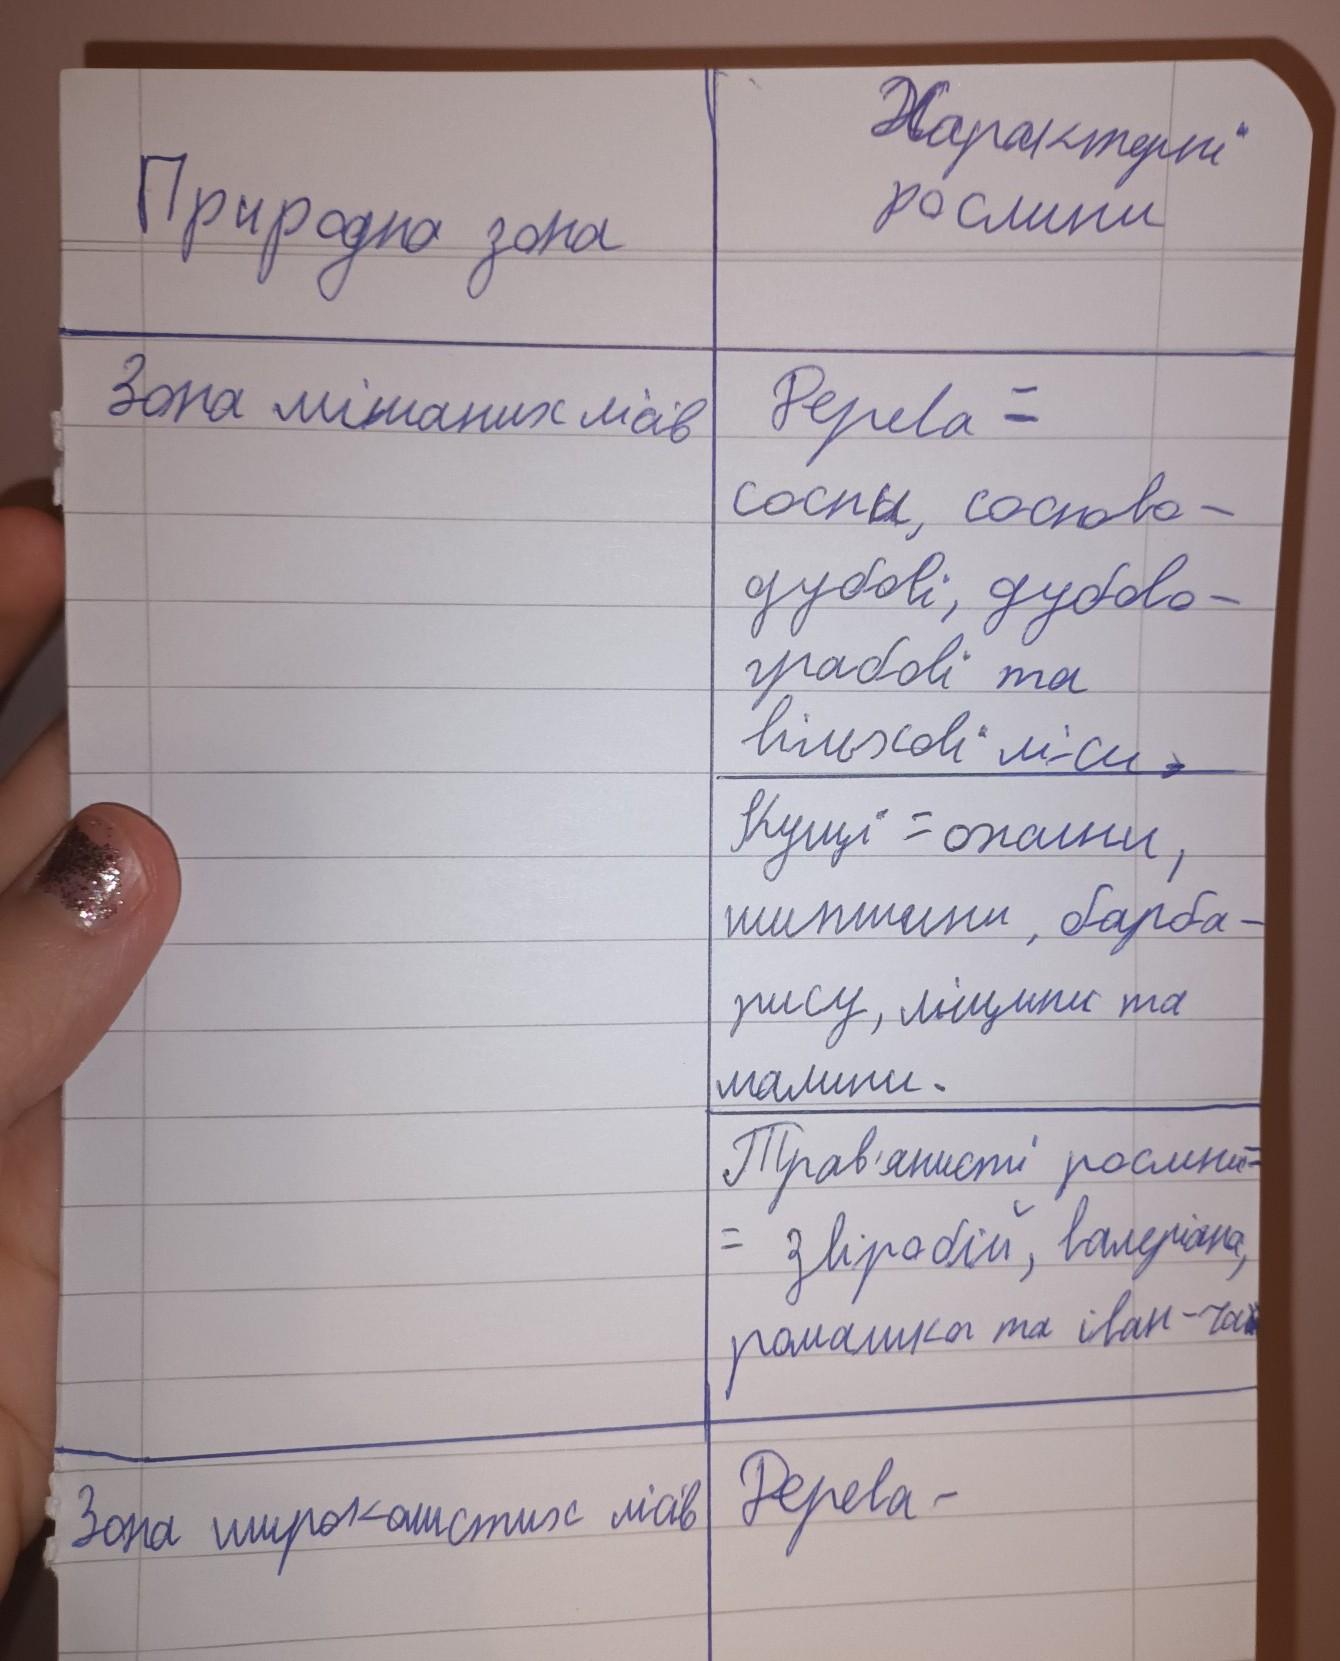 Природна зона
Характерні
рослини
Зона мішаних лісів
Дерева =
сосни, сосново-
дубові, дубово-
грабові та
вільхові ліси.
Кущі = ожини,
шипшини, барба-
рису, ліщини та
малини.
Трав'янисті рослини=
= звіробій, валеріана,
ромашка та іван-чай
Зона широколистих лісів
Дерева -